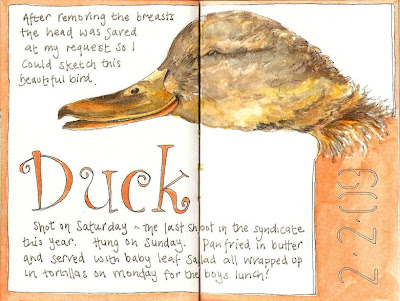 After removing the breasts
the head was saved
at my request so I
could sketch this
beautiful bird.
Duck
Shot on Saturday ~ the last shoot in the syndicate
this year. Hung on Sunday. Pan fried in butter
and served with baby leaf salad all wrapped up
in tortillas on monday for the boys lunch!
2·2·09